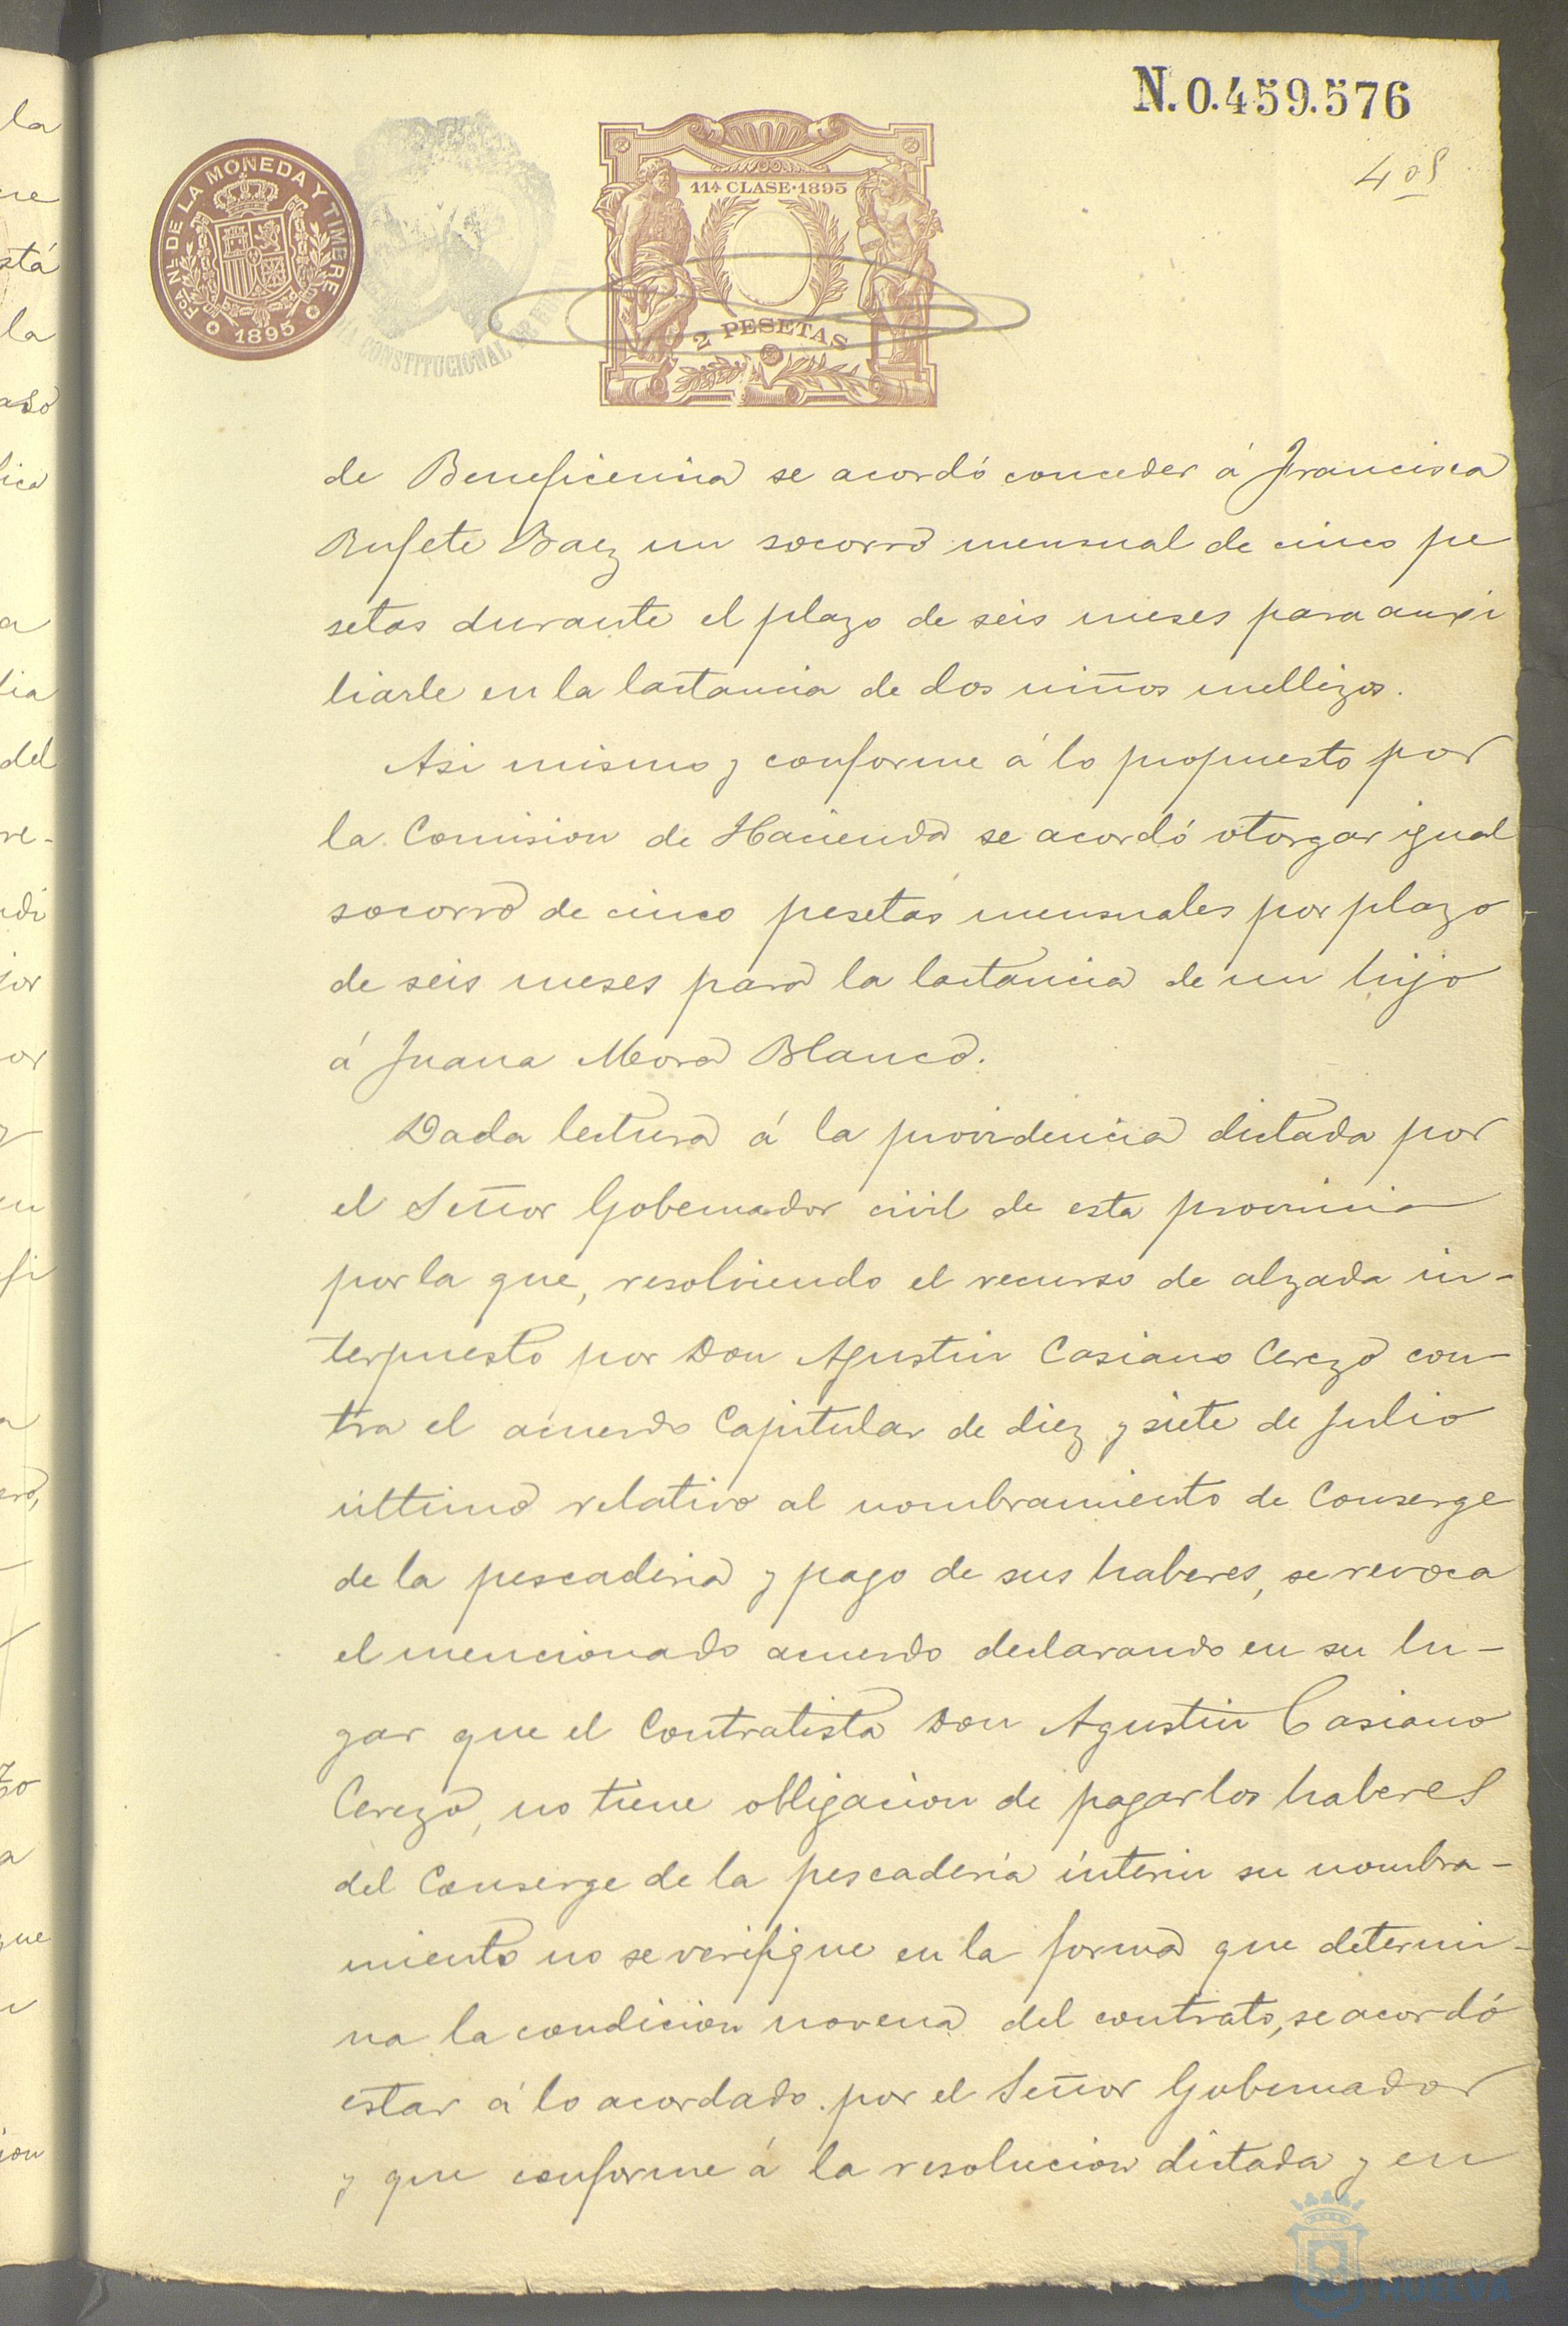 N. 0.459.576
408
FCA. NL. DE LA MONEDA Y TIMBRE
1895
CONSTITUCIONAL
11ª CLASE·1895
2 PESETAS
de Beneficencia se acordó conceder á Francisca
Rufete Baez un socorro mensual de cinco pe
setas durante el plazo de seis meses para auxi
liarle en la lactancia de dos niños mellizos.
Asi mismo y conforme á lo propuesto por
la Comision de Hacienda se acordó otorgar igual
socorro de cinco pesetas mensuales por plazo
de seis meses para la lactancia de un hijo
á Juana Mora Blanco.
Dada lectura á la providencia dictada por
el Señor Gobernador civil de esta provincia
por la que, resolviendo el recurso de alzada in-
terpuesto por Don Agustin Casiano Cerezo con-
tra el acuerdo Capitular de diez y siete de Julio
último relativo al nombramiento de Conserge
de la pescaderia y pago de sus haberes, se revoca
el mencionado acuerdo declarando en su lu-
gar que el Contratista Don Agustin Casiano
Cerezo, no tiene obligacion de pagar los haberes
del Conserge de la pescadería ínterin su nombra-
miento no se verifique en la forma que determi-
na la condicion novena del contrato, se acordó
estar á lo acordado por el Señor Gobernador
y que conforme á la resolucion dictada y en
Ayuntamiento de
HUELVA